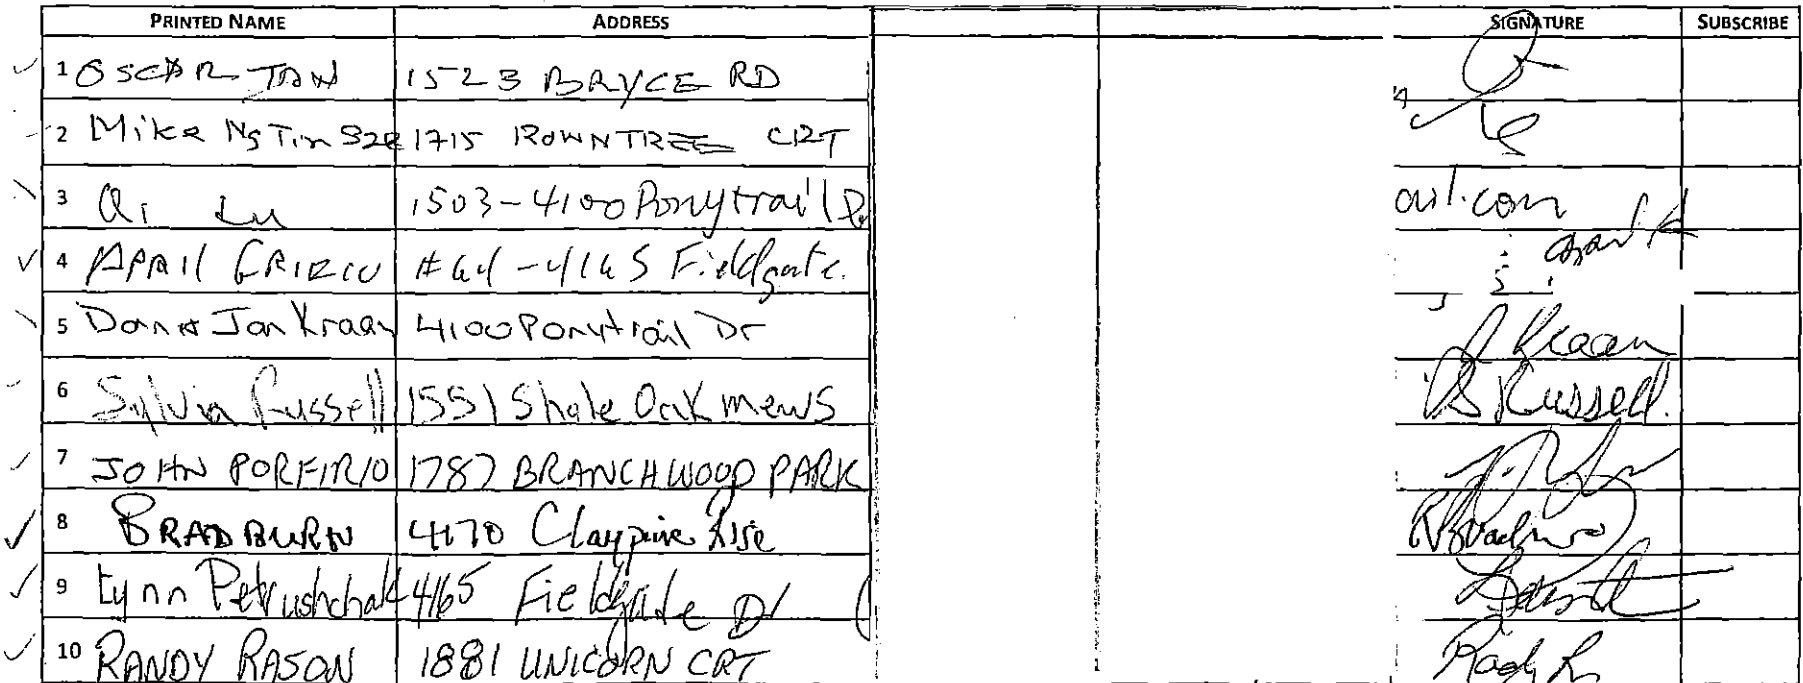 PRINTED NAME ADDRESS SIGNATURE SUBSCRIBE
1 OSCAR TAN 1523 BRYCE RD
2 Mike Ng Tin Sze 1715 ROWNTREE CRT
3 Qi Lu 1503-4100 Ponytrail Dr ail.com
4 APRIL #64-4165 Fieldgate.
5 Donna Jon Kraan 4100 Ponytrail Dr Kraan
6 Sylvia Russell 1551 Shale Oak mews S Russell.
7 JOHN PORFIRIO 1787 BRANCHWOOD PARK
8 BRADBURN 4170 Claypine Rise
9 Lynn Petrushchak 4165 Fieldgate Dr
10 RANDY RASON 1881 UNICORN CRT